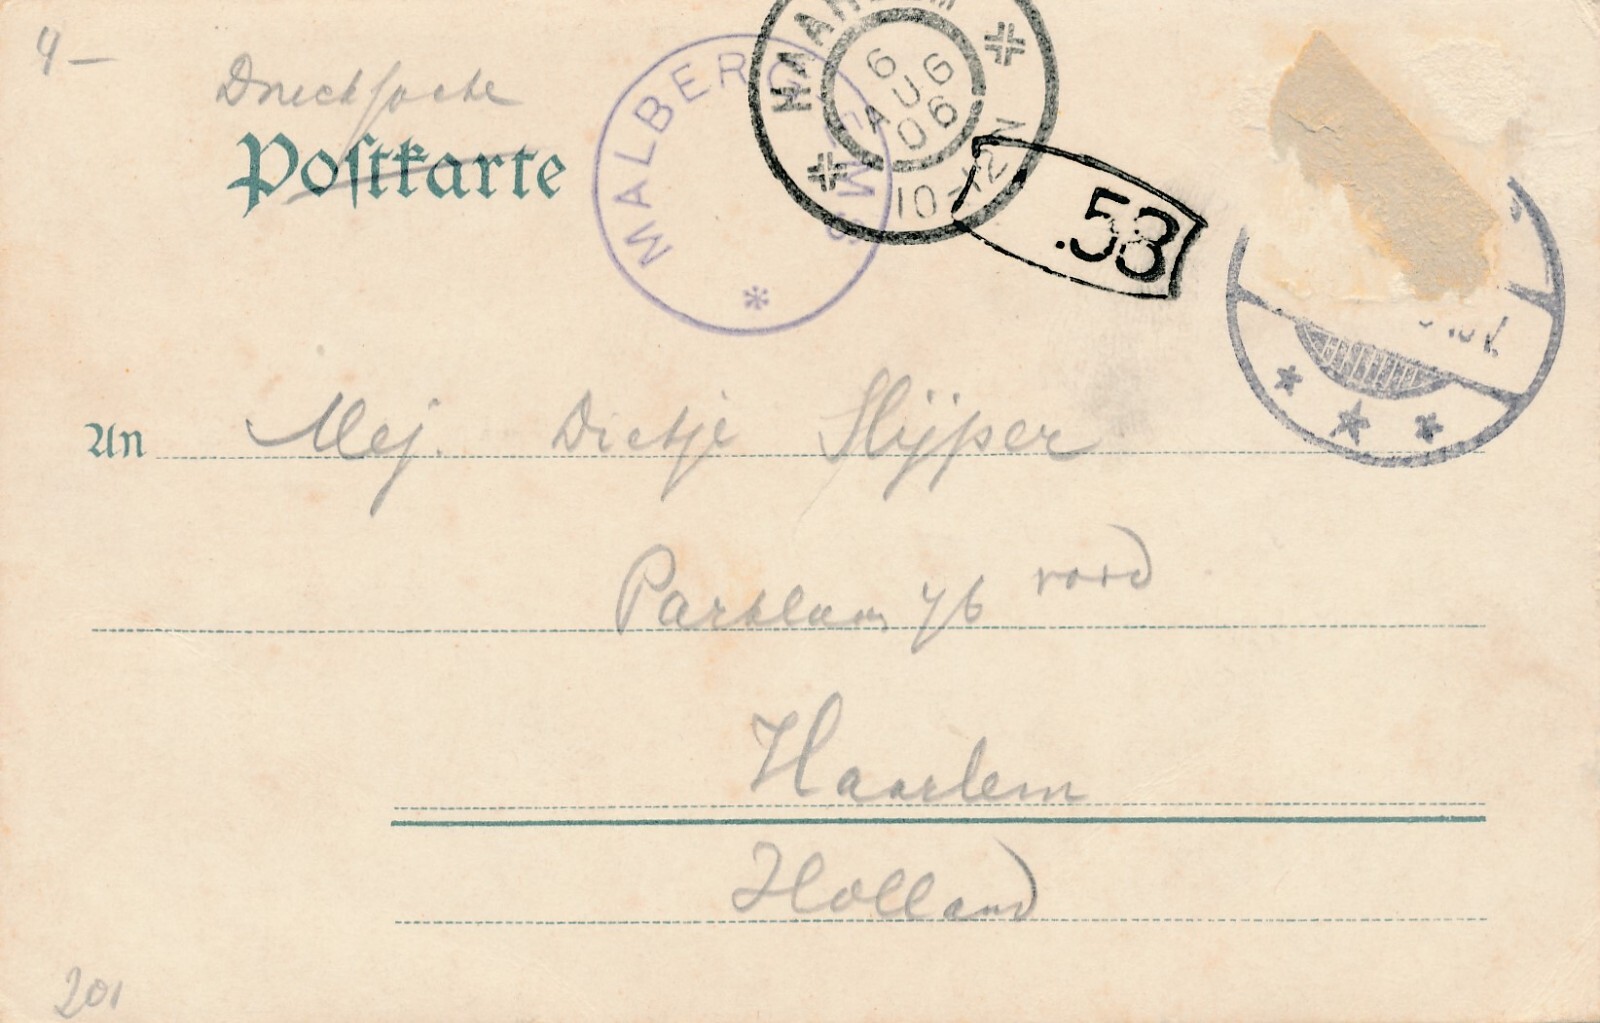 4-
Drucksache
Postkarte
MALBERG EMS
HAARLEM
6 AUG 06
10-12 N
.53
An Mej. Dietje Slijper
Parklaan 76 rood
Haarlem
Holland
201